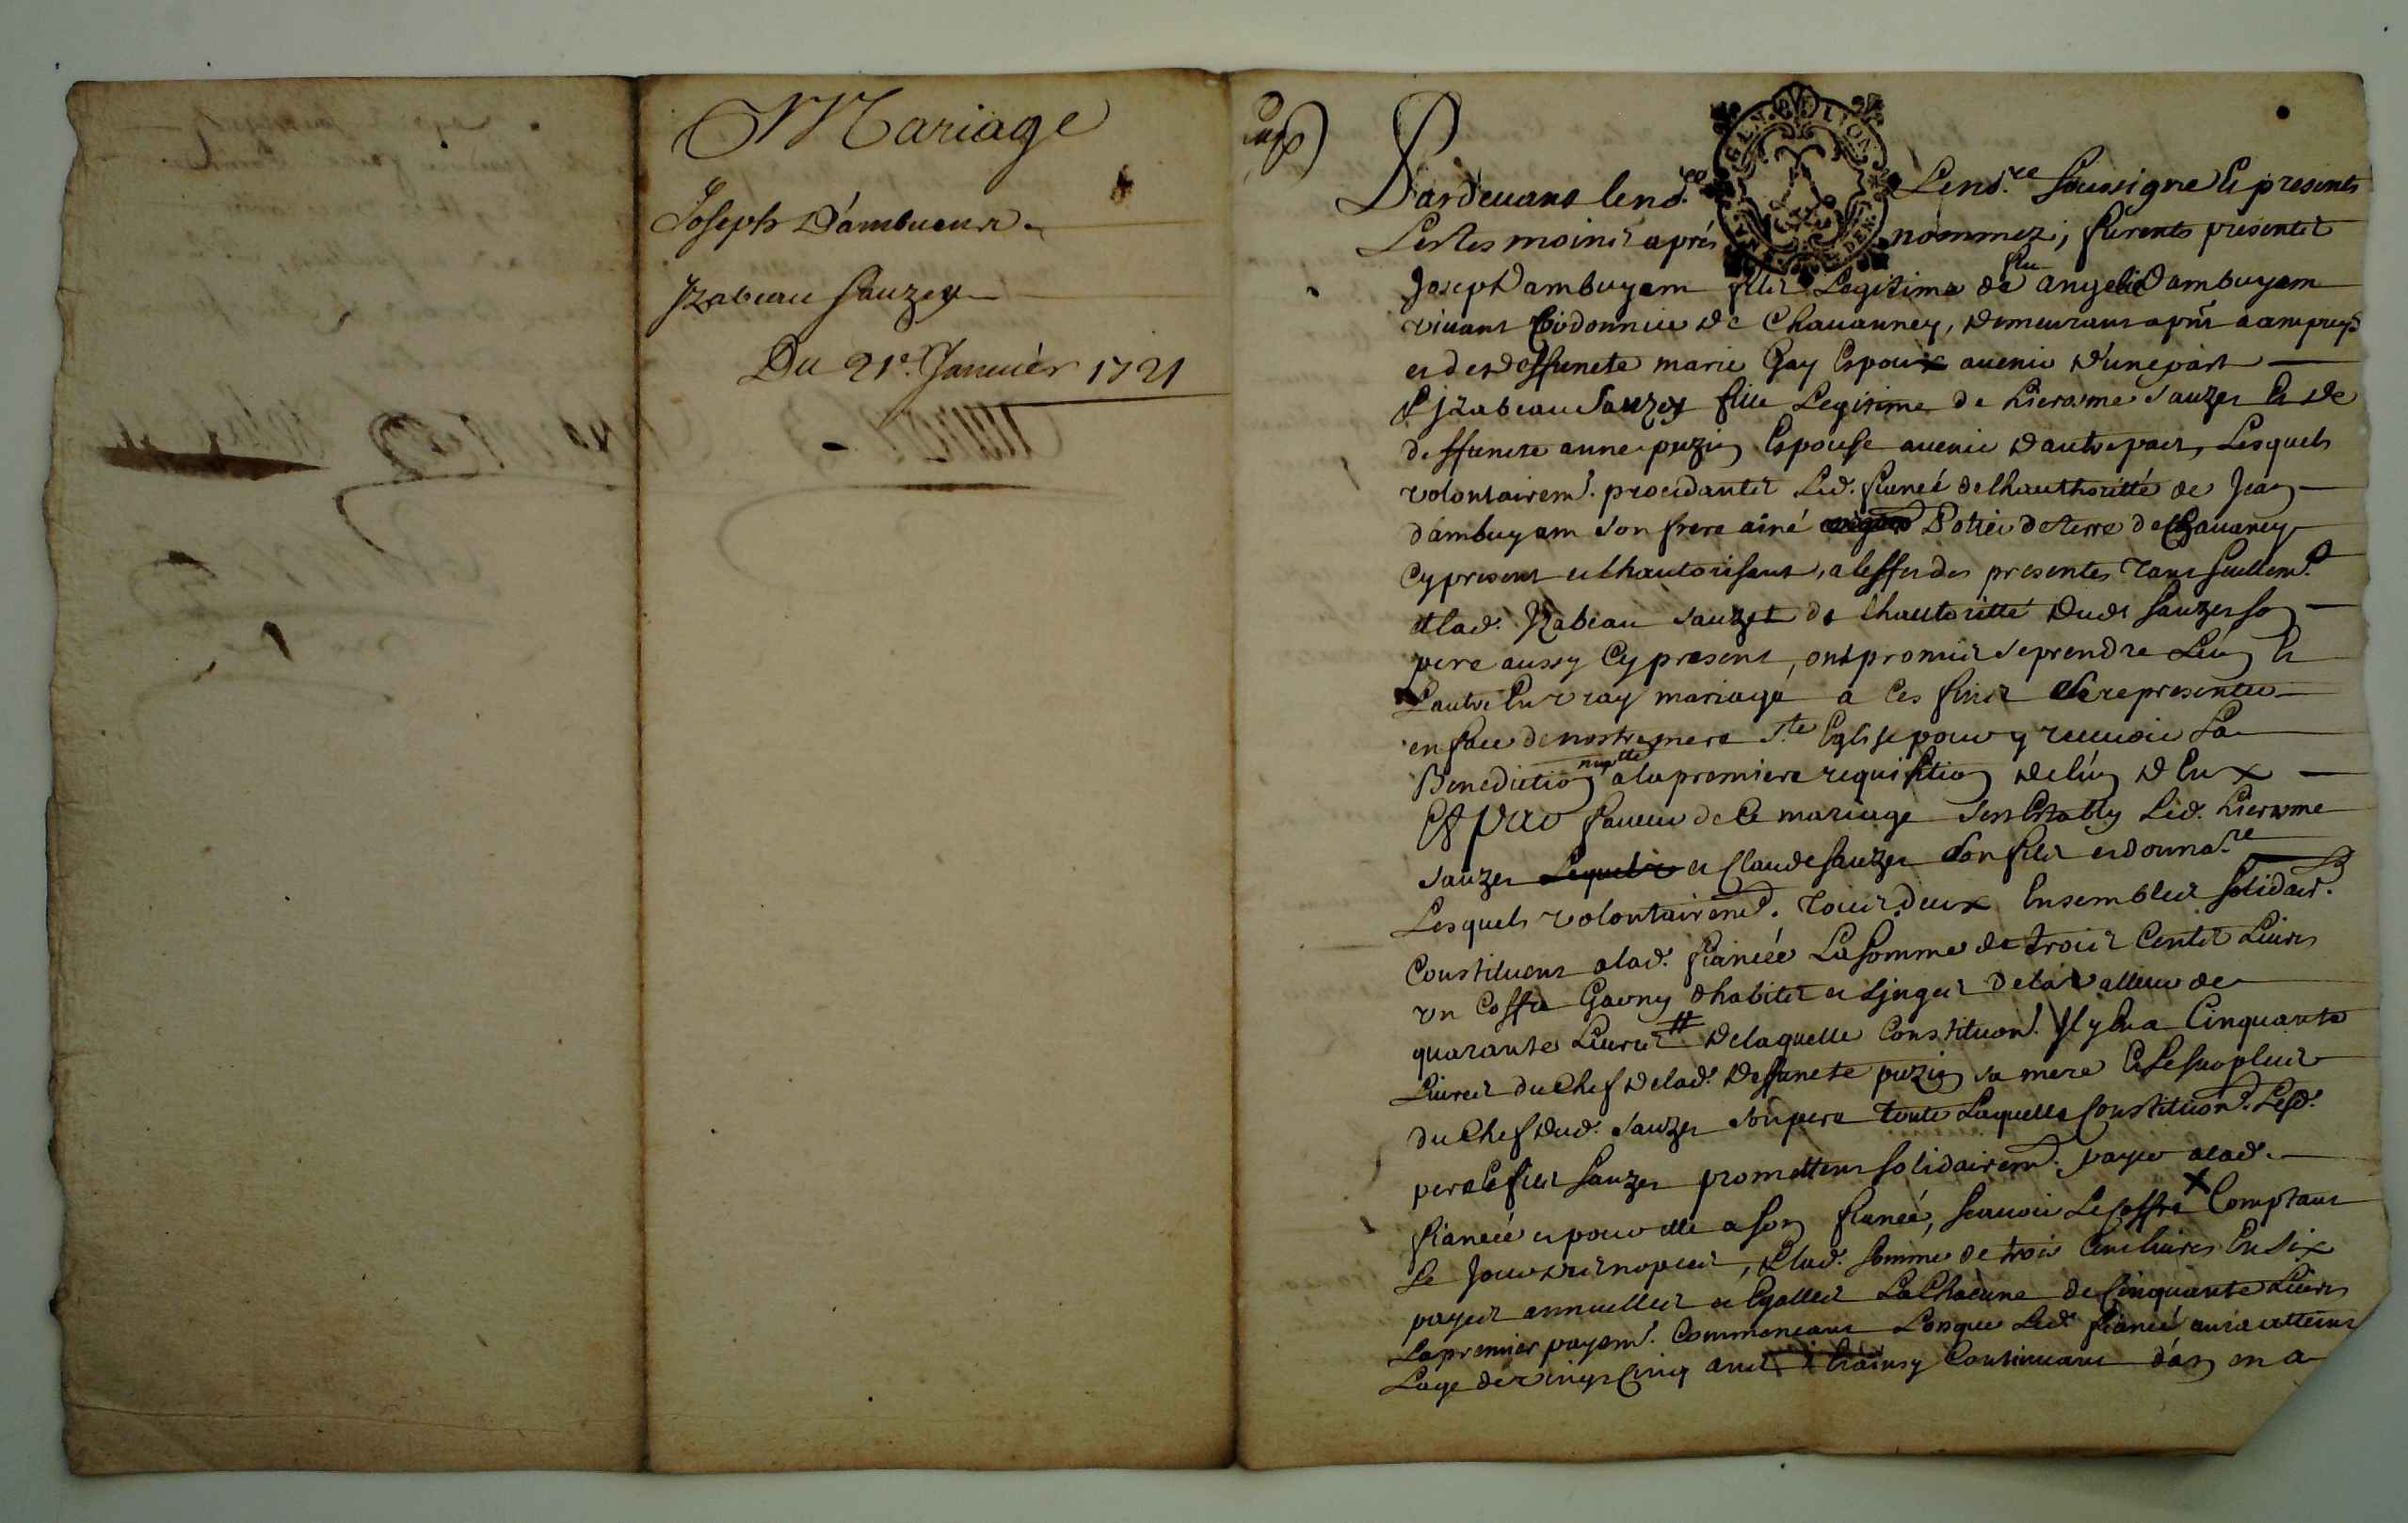 Mariage
Joseph D'ambueun
Izabeau Sauzey
Du 21e. Januièr 1721
Pardeuant le no.re Le no.re Soussigné Es presents
Les tesmoins après nommez, furents presentes
Joseph Dambuyam fils Legitime de feu angelic Dambuyam
viuant Cordonnier de Chauanney, demeurant apñt a ampuys
et de deffuncte marie Gay Espoux auenir d'une part
Et Izabeau Sauzey fille Legitime de hierosme Sauzer Et de
deffuncte anne puzin Espouse auenir d'autre part, Lesquels
volontairem.t procedantes Led. fiancé de lhauthoritté de Jean
dambuyam son frere ainé Potier de terre de Chauaney
Cy present et lhautorisant, a leffet des presentes tant seullem.t
et lad. Izabeau Sauzet de lhautoritté dudt Sauzer son
pere aussy Cy present, ont promis se prendre Lun Et
Lautre En vray mariage a Ces fins se representer
en face de nostre mere S.te Eglise pour y receuoir La
Benediction nuptlle a la premiere requisition de lun d'Eux
Et par faueur de Ce mariage s'en Estably Led. hierosme
Sauzer Lequel et Claude Sauzer son fils et donna.re
Lesquels volontairem.t tous deux Ensembles solidair.t
Constituent a lad. fiancée La somme de trois Cents Liures
vn Coffre Garny d'habits et linges de la valleur de
quarante Liures # de laquelle Constituon. Il y En a Cinquante
Liures du Chef de lad. deffuncte puzin sa mere Et le surplus
du Chef dud. Sauzer son pere toute Laquelle Constituon. Lesd.
pere Et fils Sauzer promettent solidairem.t payer a lad.
fiancée et pour elle a son fiancé, scauoir Le Coffre x Comptant
Le jour des nopces, et lad. somme de trois Cent liures En six
payes annuelles et Egalles La Chacune de Cinquante Liures
La premier payem.t Commencant Lorsque Led. fiancé aura atteint
Lage de vingt Cinq ans Et ainsy Continuant d'an en a